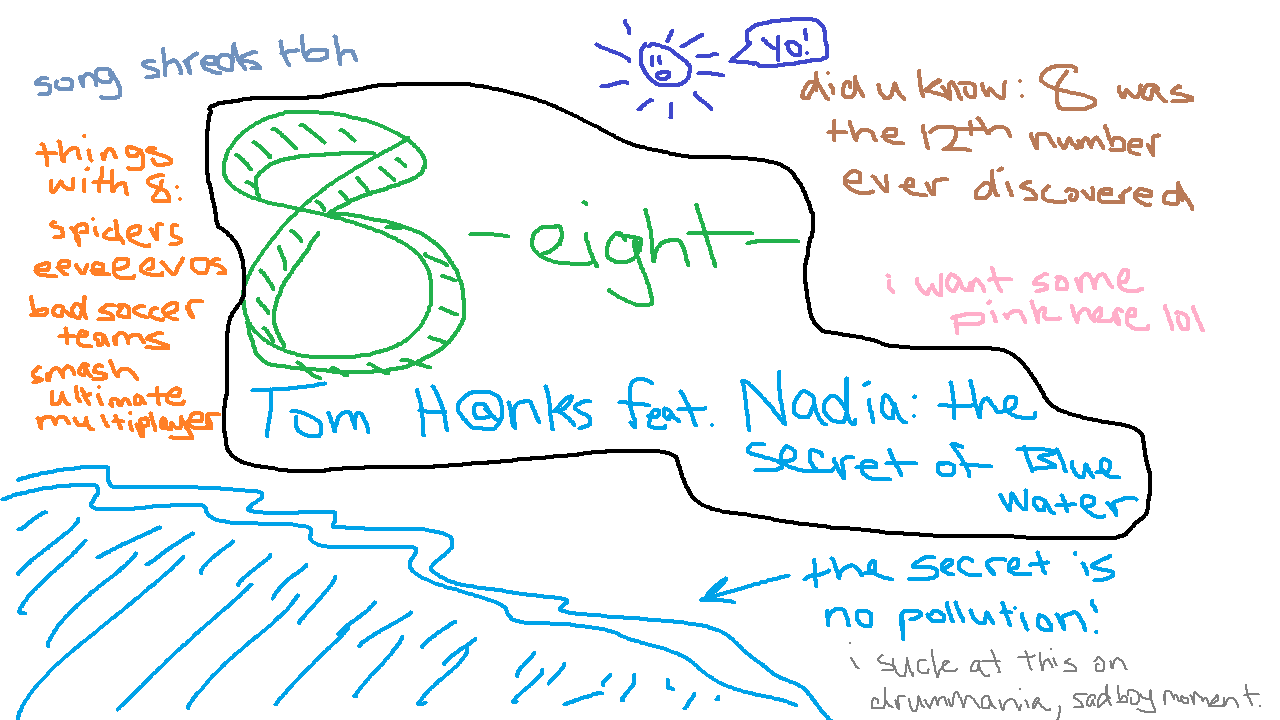 song shreds tbh
Yo!
did u know: 8 was
the 12th number
ever discovered
things
with 8:
spiders
eevee evos
bad soccer
teams
smash
ultimate
multiplayer
8
-eight-
i want some
pink here lol
Tom H@nks feat. Nadia: the
secret of Blue
Water
the secret is
no pollution!
i suck at this on
drummania, sadboy moment.